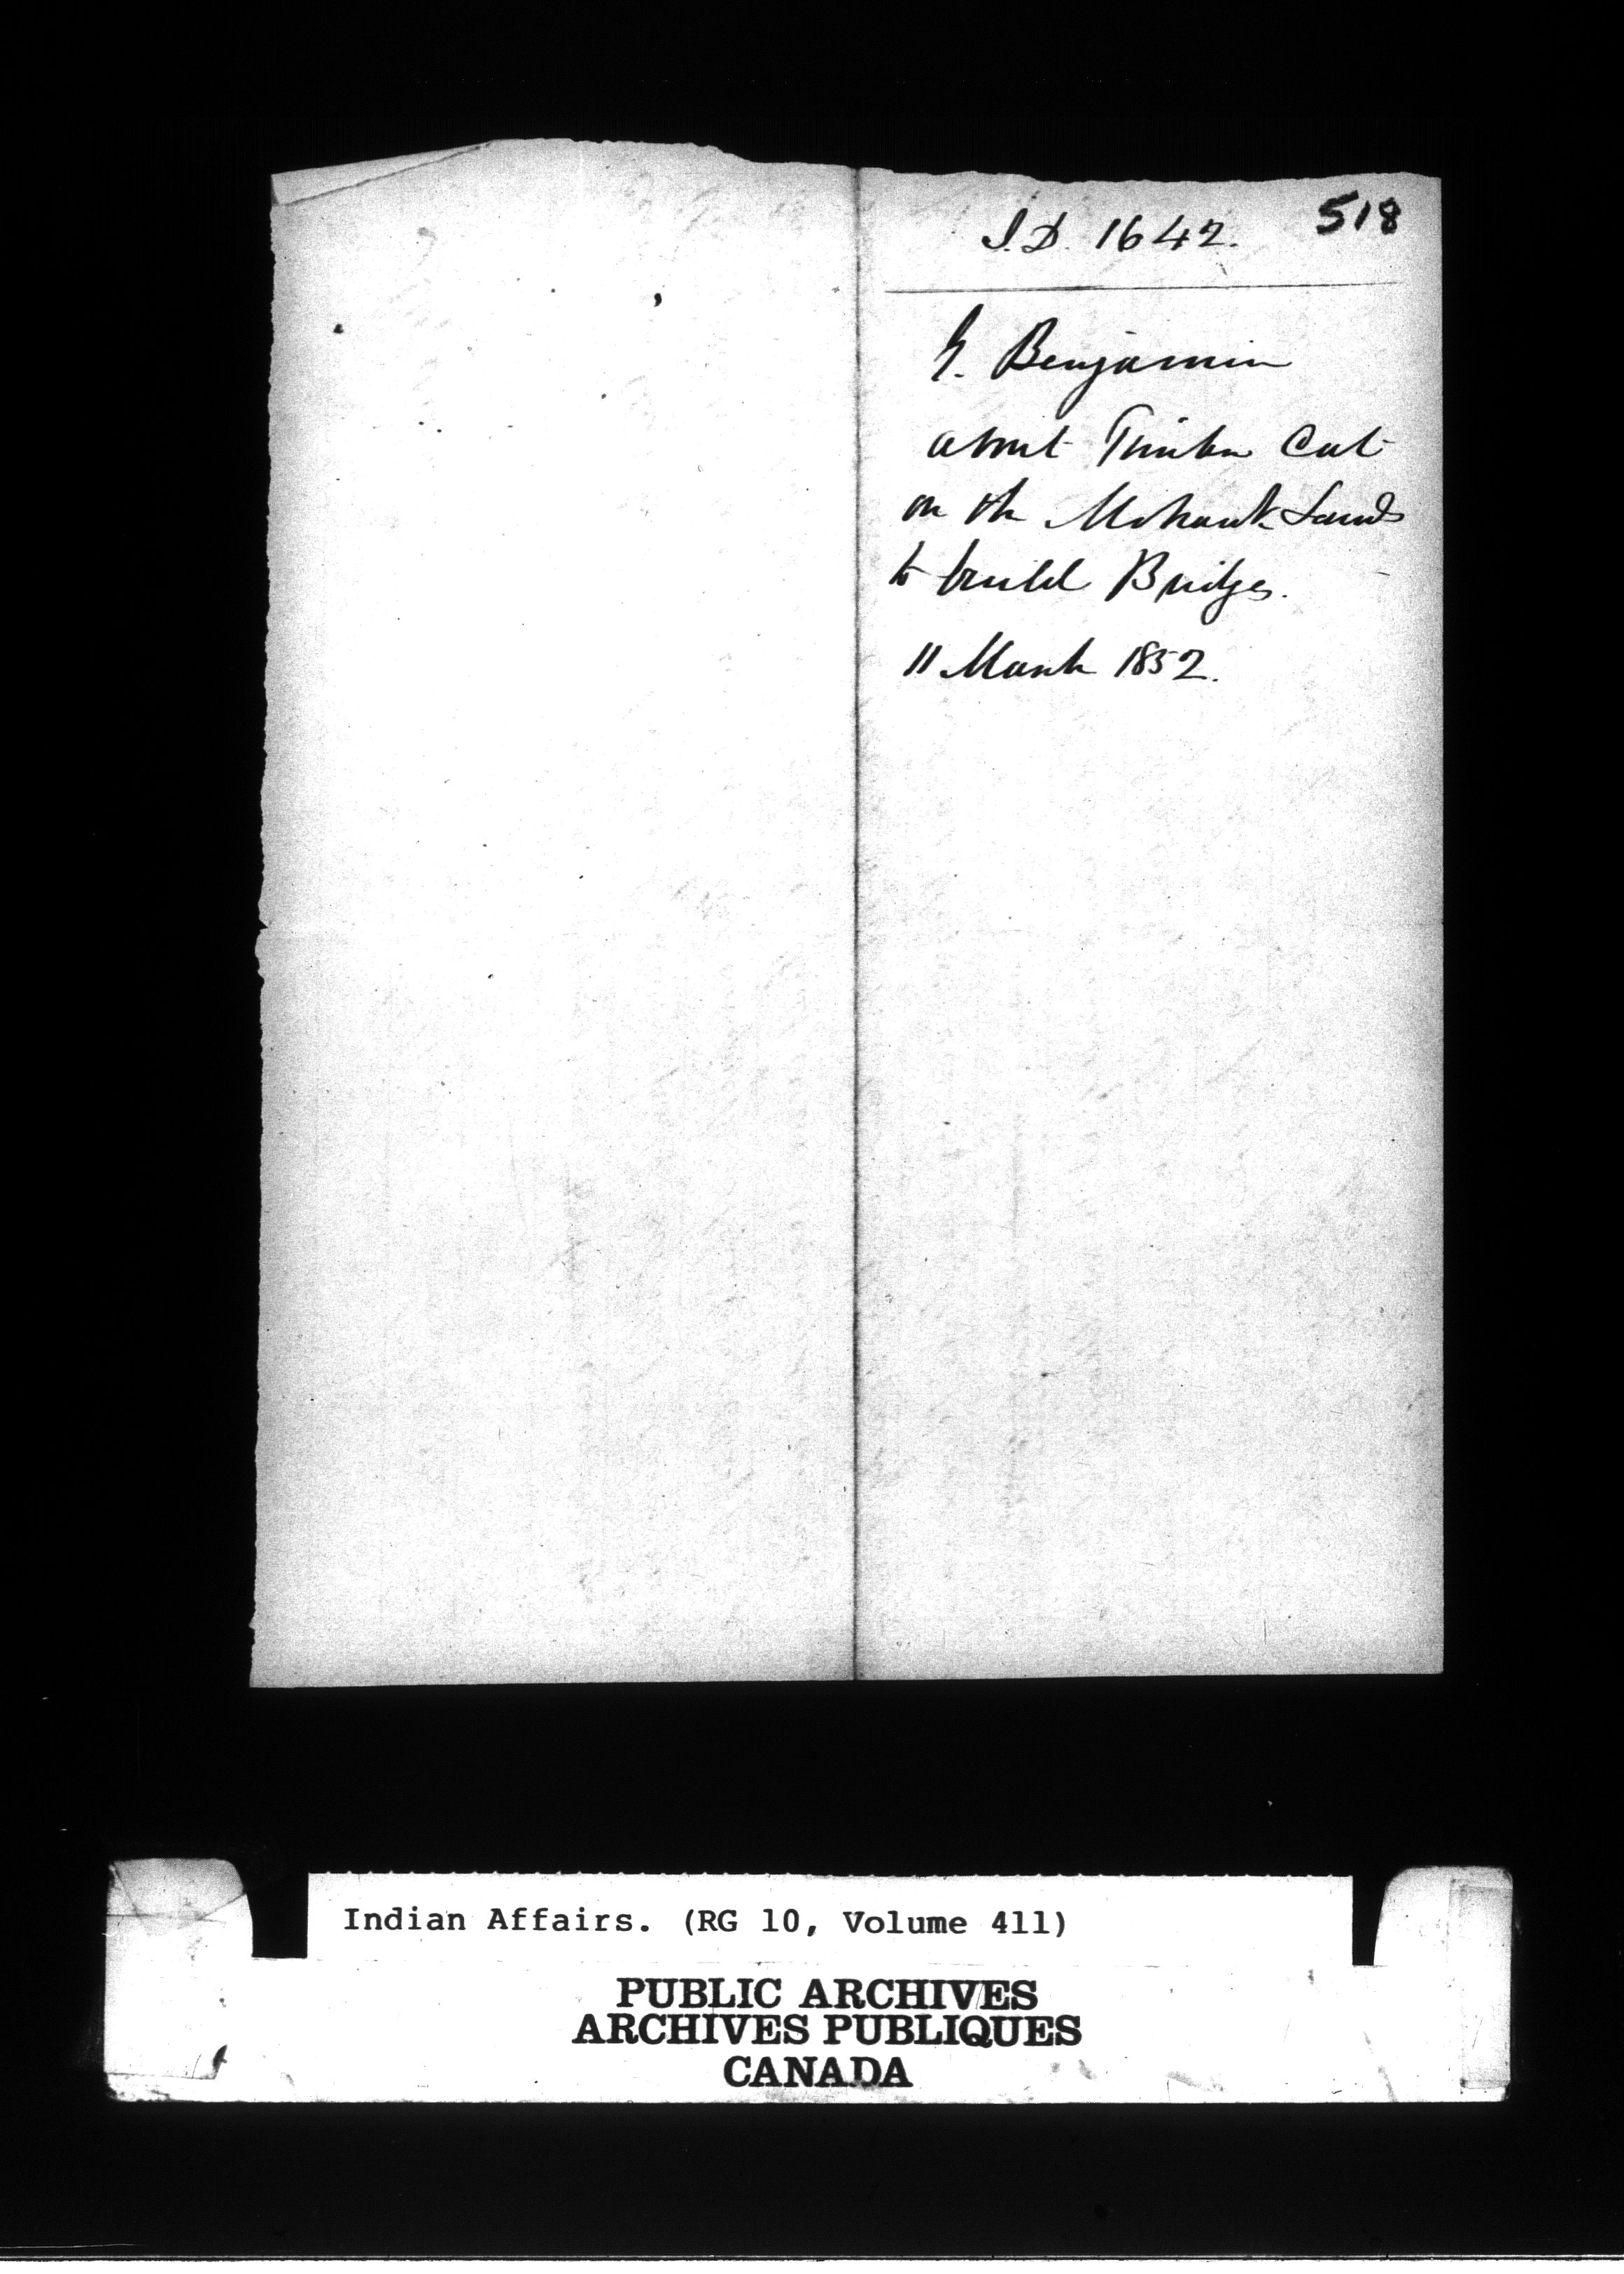 518
I.D. 1642.
G. Benjamin
about Timber Cut
on the Mohawk Lands
to build Bridges.
11 March 1852.
Indian Affairs. (RG 10, Volume 411)
PUBLIC ARCHIVES
ARCHIVES PUBLIQUES
CANADA